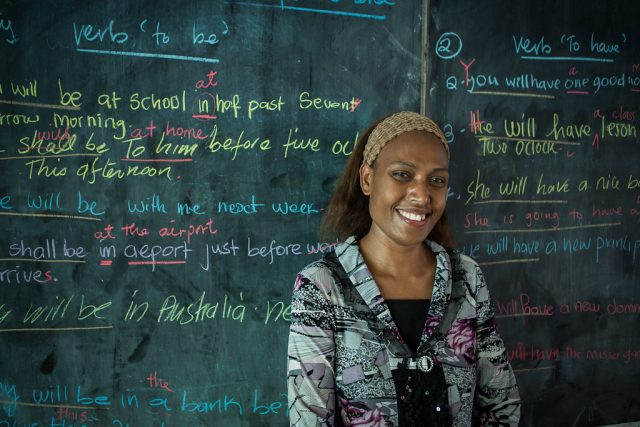 verb 'to be'
will be at school in hof past Sevent
at
rrow morning.
shall be To him before five oc
with at home
This afternoon.
will be with me next week
at the airport
shall be in aeport just before w
rrives.
will be in Australia. ne
the
will be in a bank be
this
② verb 'To have'
Y a
2. you will have one good
3. He will have lesson,
a class
Two o'clock.
she will have a nice b
she is going to have a
will have a new princip
will have a new
will have the